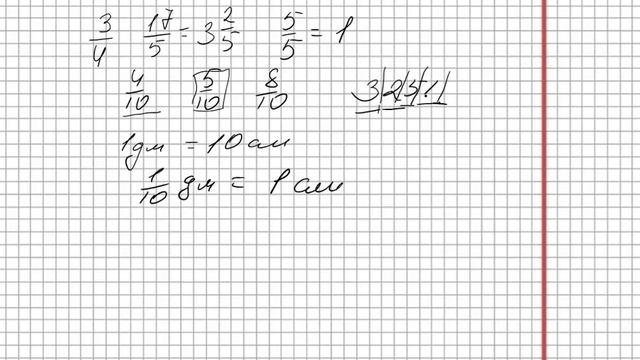 3/4 17/5 = 3 2/5 5/5 = 1
4/10 5/10 8/10
1 дм = 10 см
1/10 дм = 1 см